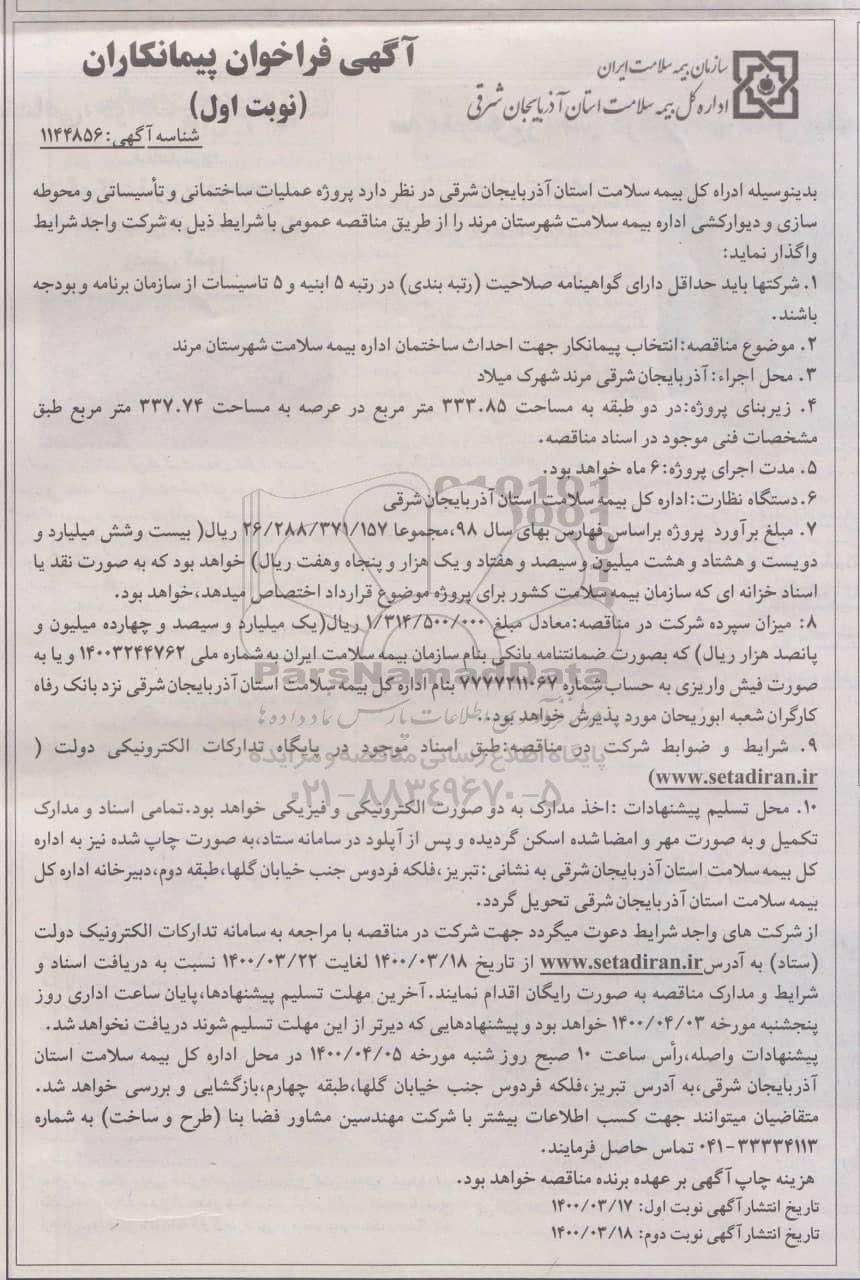 سازمان بیمه سلامت ایران
اداره کل بیمه سلامت استان آذربایجان شرقی
آگهی فراخوان پیمانکاران
(نوبت اول)
شناسه آگهی: ۱۱۴۴۸۵۶
بدینوسیله ادراه کل بیمه سلامت استان آذربایجان شرقی در نظر دارد پروژه عملیات ساختمانی و تأسیساتی و محوطه
سازی و دیوارکشی اداره بیمه سلامت شهرستان مرند را از طریق مناقصه عمومی با شرایط ذیل به شرکت واجد شرایط
واگذار نماید:
۱. شرکتها باید حداقل دارای گواهینامه صلاحیت (رتبه بندی) در رتبه ۵ ابنیه و ۵ تاسیسات از سازمان برنامه و بودجه
باشند.
۲. موضوع مناقصه:انتخاب پیمانکار جهت احداث ساختمان اداره بیمه سلامت شهرستان مرند
۳. محل اجراء: آذربایجان شرقی مرند شهرک میلاد
۴. زیربنای پروژه:در دو طبقه به مساحت ۳۳۳.۸۵ متر مربع در عرصه به مساحت ۳۳۷.۷۴ متر مربع طبق
مشخصات فنی موجود در اسناد مناقصه.
۵. مدت اجرای پروژه:۶ ماه خواهد بود.
۶.دستگاه نظارت:اداره کل بیمه سلامت استان آذربایجان شرقی
۷. مبلغ برآورد پروژه براساس فهارس بهای سال ۹۸،مجموعا ۲۶/۲۸۸/۳۷۱/۱۵۷ ریال( بیست وشش میلیارد و
دویست و هشتاد و هشت میلیون و سیصد و هفتاد و یک هزار و پنجاه وهفت ریال) خواهد بود که به صورت نقد یا
اسناد خزانه ای که سازمان بیمه سلامت کشور برای پروژه موضوع قرارداد اختصاص میدهد،خواهد بود.
۸: میزان سپرده شرکت در مناقصه:معادل مبلغ ۱/۳۱۴/۵۰۰/۰۰۰ ریال(یک میلیارد و سیصد و چهارده میلیون و
پانصد هزار ریال) که بصورت ضمانتنامه بانکی بنام سازمان بیمه سلامت ایران به شماره ملی ۱۴۰۰۳۲۴۴۷۶۲ و یا به
صورت فیش واریزی به حساب شماره ۷۷۷۷۲۱۱۰۶۷ بنام اداره کل بیمه سلامت استان آذربایجان شرقی نزد بانک رفاه
کارگران شعبه ابوریحان مورد پذیرش خواهد بود..
۹. شرایط و ضوابط شرکت در مناقصه:طبق اسناد موجود در پایگاه تدارکات الکترونیکی دولت (
www.setadiran.ir)
۱۰. محل تسلیم پیشنهادات :اخذ مدارک به دو صورت الکترونیکی و فیزیکی خواهد بود.تمامی اسناد و مدارک
تکمیل و به صورت مهر و امضا شده اسکن گردیده و پس از آپلود در سامانه ستاد،به صورت چاپ شده نیز به اداره
کل بیمه سلامت استان آذربایجان شرقی به نشانی: تبریز،فلکه فردوس جنب خیابان گلها،طبقه دوم،دبیرخانه اداره کل
بیمه سلامت استان آذربایجان شرقی تحویل گردد.
از شرکت های واجد شرایط دعوت میگردد جهت شرکت در مناقصه با مراجعه به سامانه تدارکات الکترونیک دولت
(ستاد) به آدرس www.setadiran.ir از تاریخ ۱۴۰۰/۰۳/۱۸ لغایت ۱۴۰۰/۰۳/۲۲ نسبت به دریافت اسناد و
شرایط و مدارک مناقصه به صورت رایگان اقدام نمایند.آخرین مهلت تسلیم پیشنهادها،پایان ساعت اداری روز
پنجشنبه مورخه ۱۴۰۰/۰۴/۰۳ خواهد بود و پیشنهادهایی که دیرتر از این مهلت تسلیم شوند دریافت نخواهد شد.
پیشنهادات واصله،رأس ساعت ۱۰ صبح روز شنبه مورخه ۱۴۰۰/۰۴/۰۵ در محل اداره کل بیمه سلامت استان
آذربایجان شرقی،به آدرس تبریز،فلکه فردوس جنب خیابان گلها،طبقه چهارم،بازگشایی و بررسی خواهد شد.
متقاضیان میتوانند جهت کسب اطلاعات بیشتر با شرکت مهندسین مشاور فضا بنا (طرح و ساخت) به شماره
۰۴۱-۳۳۳۳۴۱۱۳ تماس حاصل فرمایند.
هزینه چاپ آگهی بر عهده برنده مناقصه خواهد بود.
تاریخ انتشار آگهی نوبت اول: ۱۴۰۰/۰۳/۱۷
تاریخ انتشار آگهی نوبت دوم: ۱۴۰۰/۰۳/۱۸
ParsNamadData
پایگاه اطلاع رسانی مناقصه و مزایده
۰۲۱-۸۸۳۴۹۶۷۰-۵